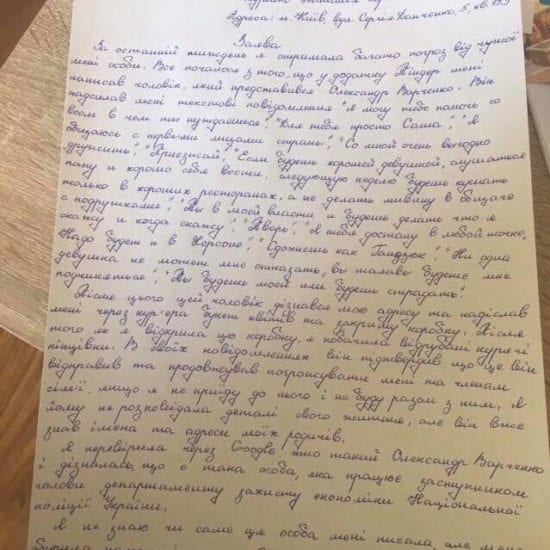 Адреса: м. Київ, вул. Сергія Данченко, 5, кв.
Заява
За останній тиждень я отримала багато погроз від чужої
мені особи. Все почалося з того, що у додатку Тіндер мені
написав чоловік, який представився Олександр Варченко. Він
надсилав мені текстові повідомлення "Я могу тебе помочь со
всем в чем ты нуждаешься", "Для тебя просто Саша", "Я
общаюсь с первыми лицами страны", "Со мной очень выгодно
дружить", "Приезжай", "Если будешь хорошей девушкой, слушаться
папу и хорошо себя вести, следующую неделю будешь кушать
только в хороших ресторанах, а не делать мивину в общаге
с подружками", "Ты в моей власти и будешь делать что я
скажу и когда скажу", "Я тебя достану в любой точке,
Надо будет и в Херсоне", "Сдохнешь как Гандзюк", "Ни одна
девушка не может мне отказать, вы шалавы будете мне
подчиняться", "Ты будешь моей или будешь страдать".
Після цього цей чоловік дізнався мою адресу та надіслав
мені через кур'єра букет квітів та закриту коробку. Після
того як я відкрила цю коробку, я побачила відрубані курячі
кінцівки. В своїх повідомленнях він підтвердив що це він
відправив та продовжував погрожувати мені та членам
сім'ї, якщо я не приїду до нього і не буду разом з ним. Я
йому не розповідала деталі свого життя, але він вже
знав імена та адреси моїх родичів.
Я перевірила через Google хто такий Олександр Варченко
і дізналась, що є така особа, яка працює заступником
голови департаменту захисту економіки Національної
поліції України.
Я не знаю чи саме ця особа мені писала, але мені